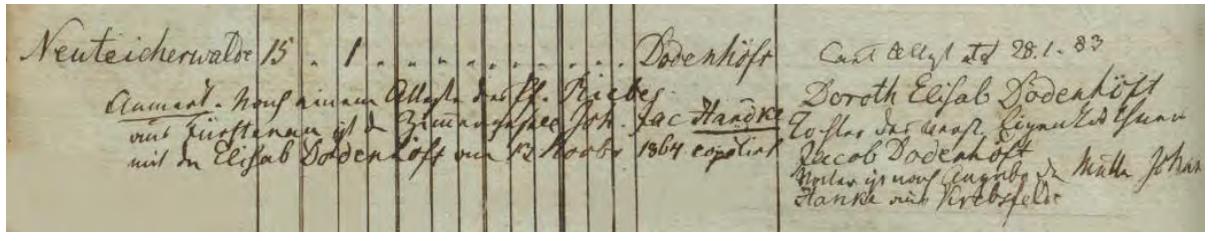 Neuteicherwalde 15 . 1 . . . . . . . . . . . Dodenhöft
Laut Attest d d 28.1.83
Anmerk. Nach einem Atteste des Pf. Riebes
aus Fürstenau ist d Zimmergesell Joh. Jac Handke
mit der Elisab Dodenhöft am 13 Novbr 1864 copulirt
Doroth Elisab Dodenhöft
Tochter des verst. Eigenkäthner
Jacob Dodenhöft
Vater ist nach Angabe der Mutter Johan
Hanke aus Krebsfelde